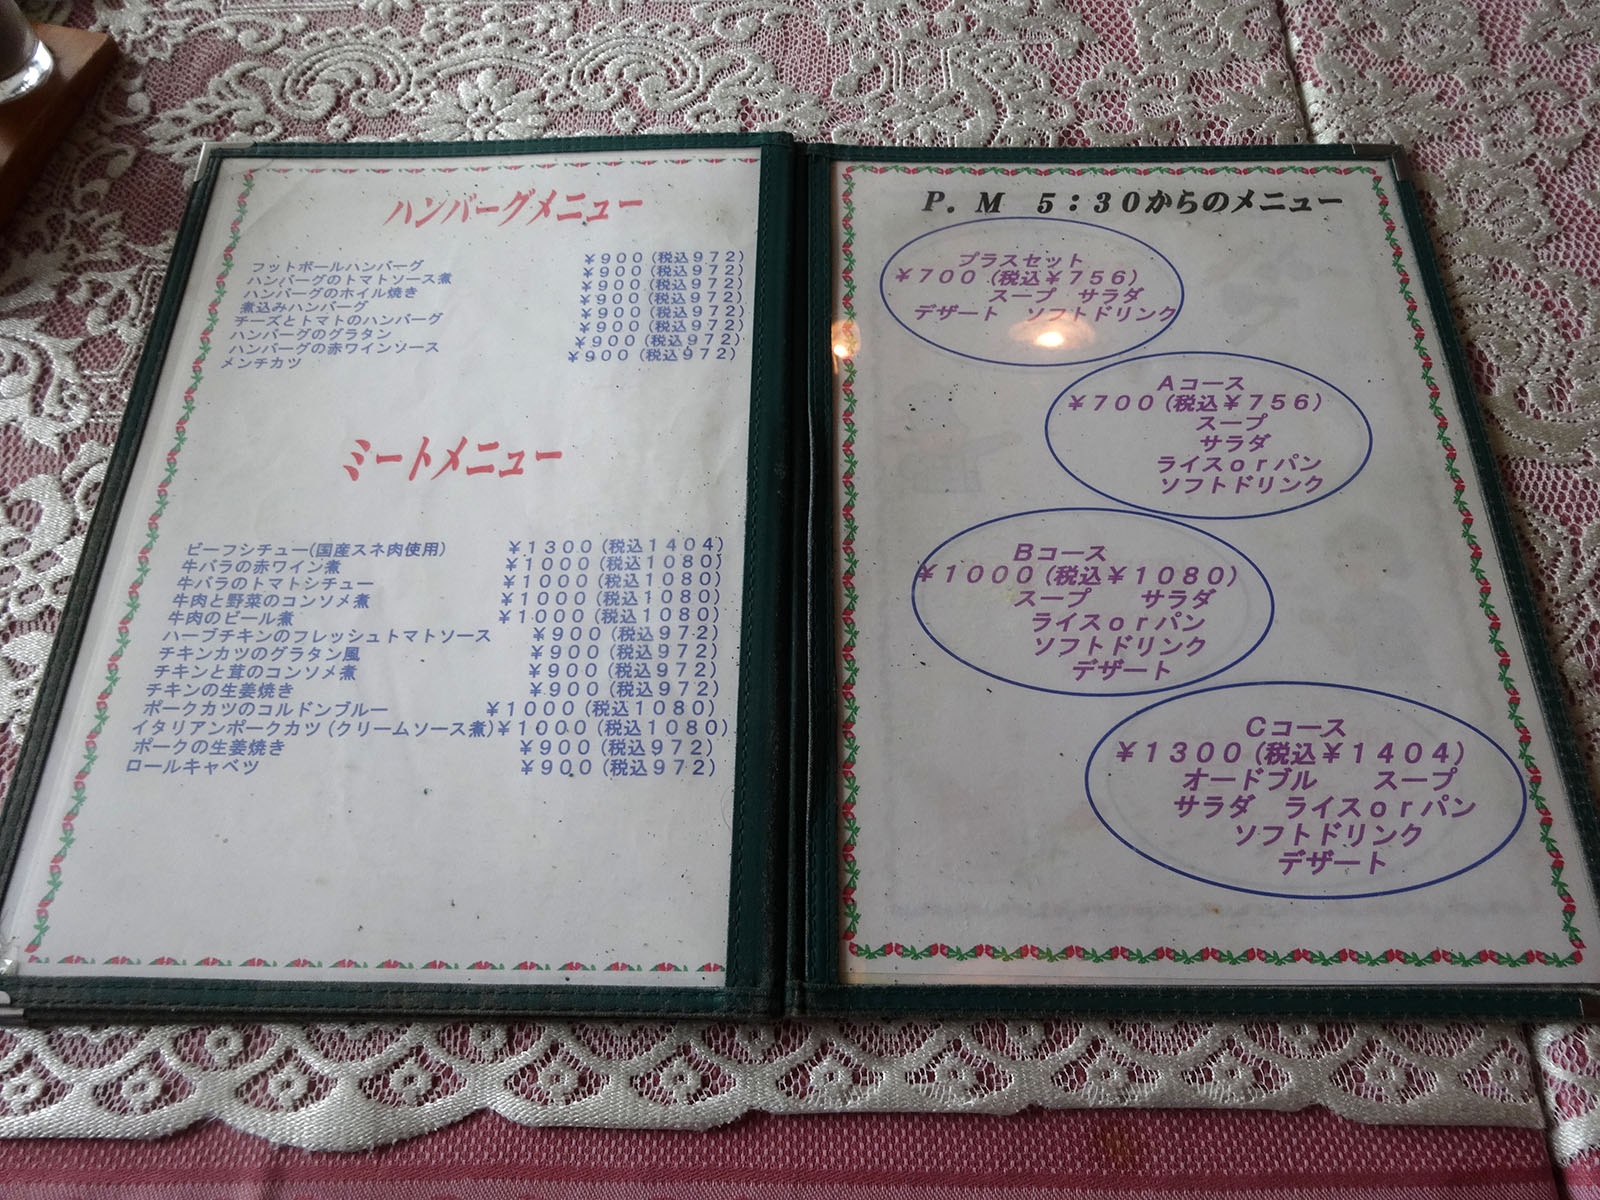 ハンバーグメニュー
フットボールハンバーグ ¥900(税込972)
ハンバーグのトマトソース煮 ¥900(税込972)
ハンバーグのホイル焼き ¥900(税込972)
煮込みハンバーグ ¥900(税込972)
チーズとトマトのハンバーグ ¥900(税込972)
ハンバーグのグラタン ¥900(税込972)
ハンバーグの赤ワインソース ¥900(税込972)
メンチカツ ¥900(税込972)
ミートメニュー
ビーフシチュー(国産スネ肉使用) ¥1300(税込1404)
牛バラの赤ワイン煮 ¥1000(税込1080)
牛バラのトマトシチュー ¥1000(税込1080)
牛肉と野菜のコンソメ煮 ¥1000(税込1080)
牛肉のビール煮 ¥1000(税込1080)
ハーブチキンのフレッシュトマトソース ¥900(税込972)
チキンカツのグラタン風 ¥900(税込972)
チキンと茸のコンソメ煮 ¥900(税込972)
チキンの生姜焼き ¥900(税込972)
ポークカツのコルドンブルー ¥1000(税込1080)
イタリアンポークカツ(クリームソース煮) ¥1000(税込1080)
ポークの生姜焼き ¥900(税込972)
ロールキャベツ ¥900(税込972)
P.M 5:30からのメニュー
プラスセット
¥700(税込¥756)
スープ サラダ
デザート ソフトドリンク
Aコース
¥700(税込¥756)
スープ
サラダ
ライスorパン
ソフトドリンク
Bコース
¥1000(税込¥1080)
スープ サラダ
ライスorパン
ソフトドリンク
デザート
Cコース
¥1300(税込¥1404)
オードブル スープ
サラダ ライスorパン
ソフトドリンク
デザート